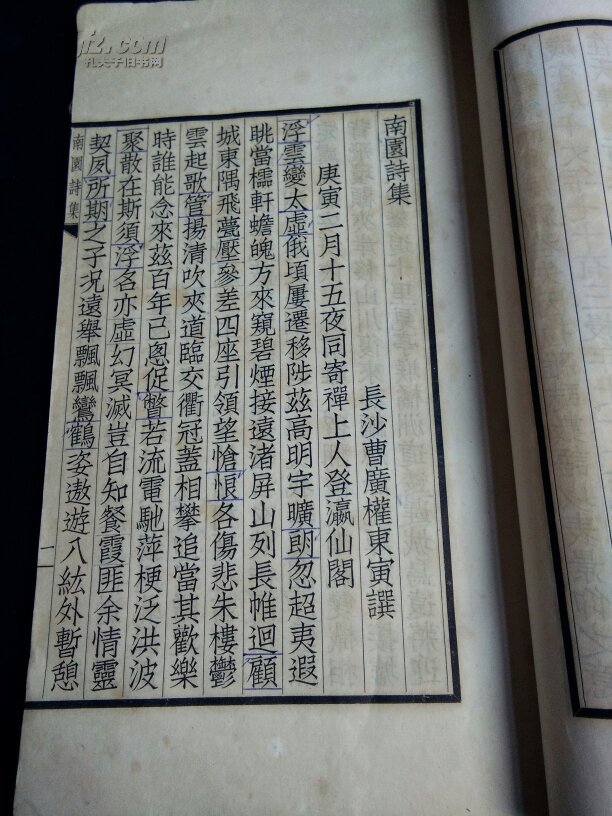 南園詩集
長沙曹廣權東寅譔
庚寅二月十五夜同寄禪上人登瀛仙閣
浮雲變太虛俄頃屢遷移陟茲高明宇曠朗忽超夷遐
眺當櫺軒蟾魄方來窺碧煙接遠渚屏山列長帷迴顧
城東隅飛甍壓參差四座引領望愴悢各傷悲朱樓鬱
雲起歌管揚清吹夾道臨交衢冠蓋相攀追當其歡樂
時誰能念來茲百年已悤促瞥若流電馳萍梗泛洪波
聚散在斯須浮名亦虛幻冥滅豈自知餐霞匪余情靈
契夙所期之子况遠舉飄飄鸞鶴姿遨遊八紘外暫憩
南園詩集
一
孔夫子旧书网